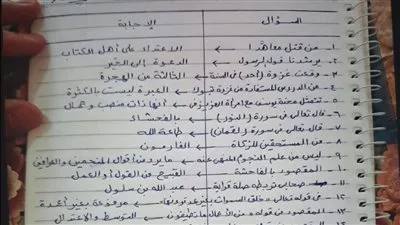 السؤال الإجابة
١- من قتل معاهدًا ← الاعتداء على أهل الكتاب
٢- يرشدنا قول الرسول ← الدعوة إلى الخير
٣- وقعت غزوة (أحد) في السنة ← الثالثة من الهجرة
٤- من الدروس المستفادة من غزوة تبوك ← العبرة ليست بالكثرة
٥- تتمثل محنة يوسف مع امرأة العزيز في ← أنها ذات منصب وجمال
٦- قال تعالى في سورة (النور) ← بالفحشاء
٧- قال تعالى في سورة (لقمان) ← طاعة الله
٨- من المستحقين للزكاة ← الغارمون
٩- ليس من علم النجوم المنهي عنه ← أقوال المنجمين والعرافين
١٠- المقصود بالفاحشة ← القبيح من القول أو العمل
١١- صحابي تربطه صلة قرابة ← عبد الله بن سلول
١٢- في قوله تعالى خلق السموات بغير عمد ترونها ← مرفوعة بغير أعمدة
١٣- المقصود في قوله من الأعمال ما تطيقون ← التوسط والاعتدال